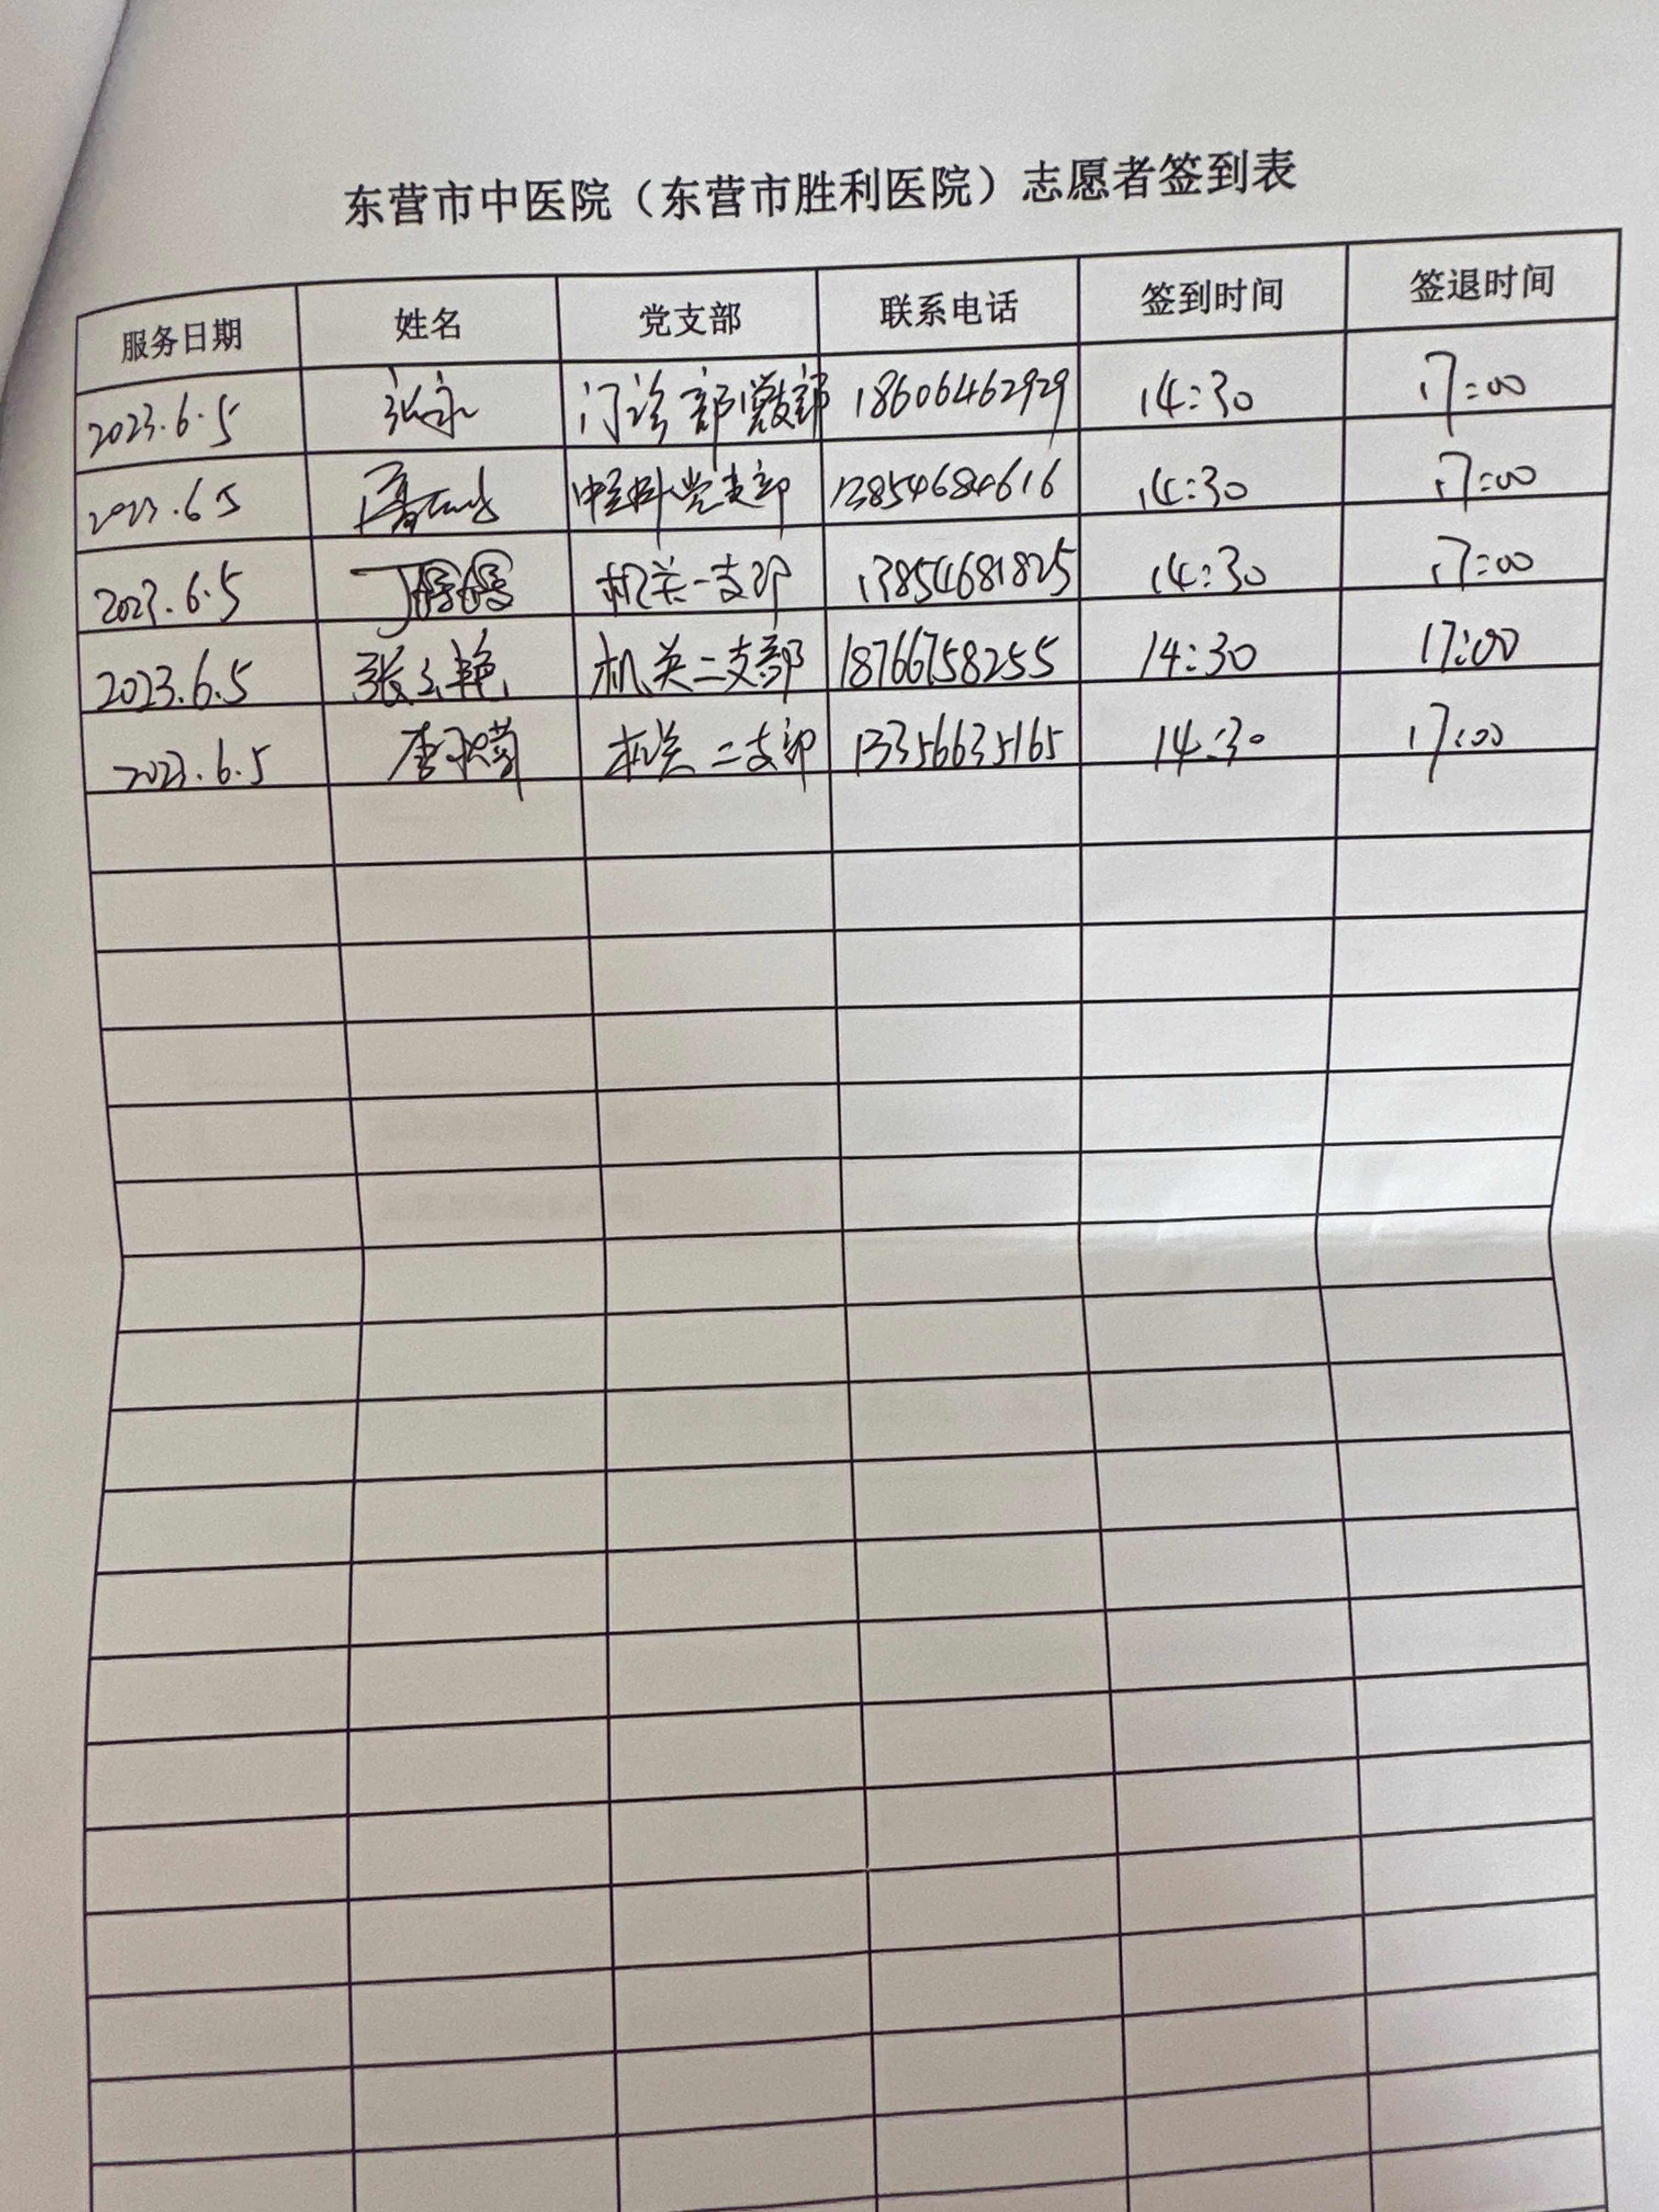 东营市中医院（东营市胜利医院）志愿者签到表
服务日期 姓名 党支部 联系电话 签到时间 签退时间
2023.6.5 张永 门诊部党支部 18606462929 14:30 17:00
2023.6.5 中医科党支部 13854684616 14:30 17:00
2023.6.5 丁 机关一支部 13854681825 14:30 17:00
2023.6.5 张玉艳 机关二支部 18766758255 14:30 17:00
2023.6.5 李 机关二支部 13356635165 14:30 17:00